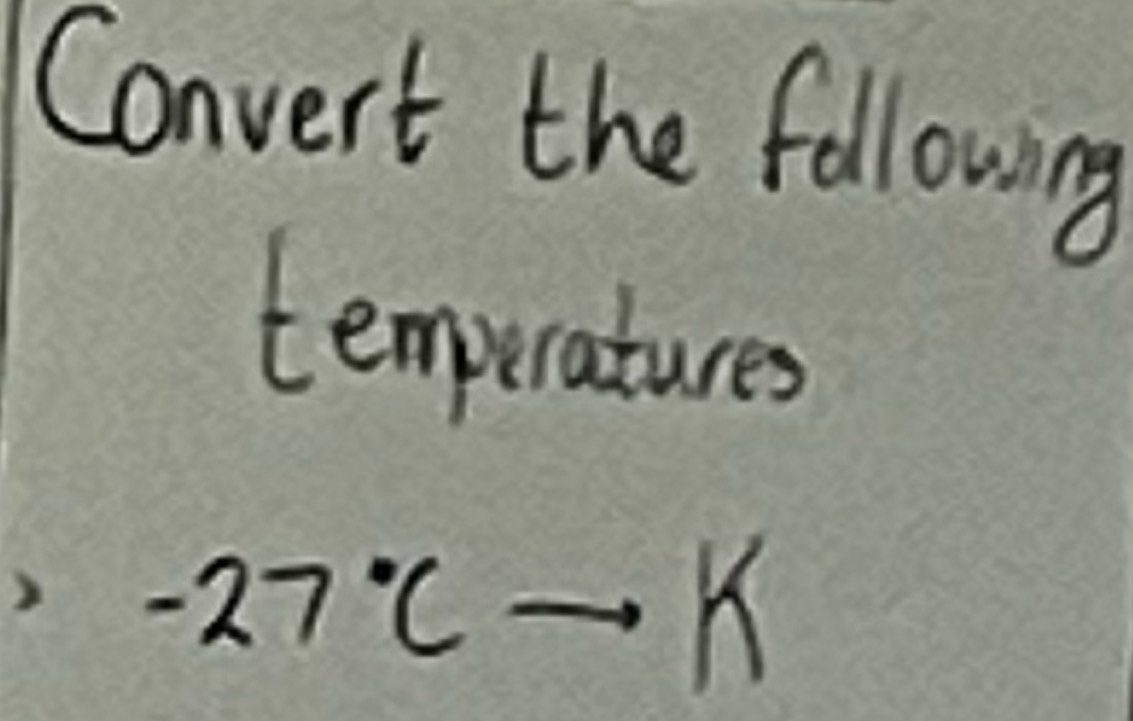 Convert the following
temperatures
> -27°C → K